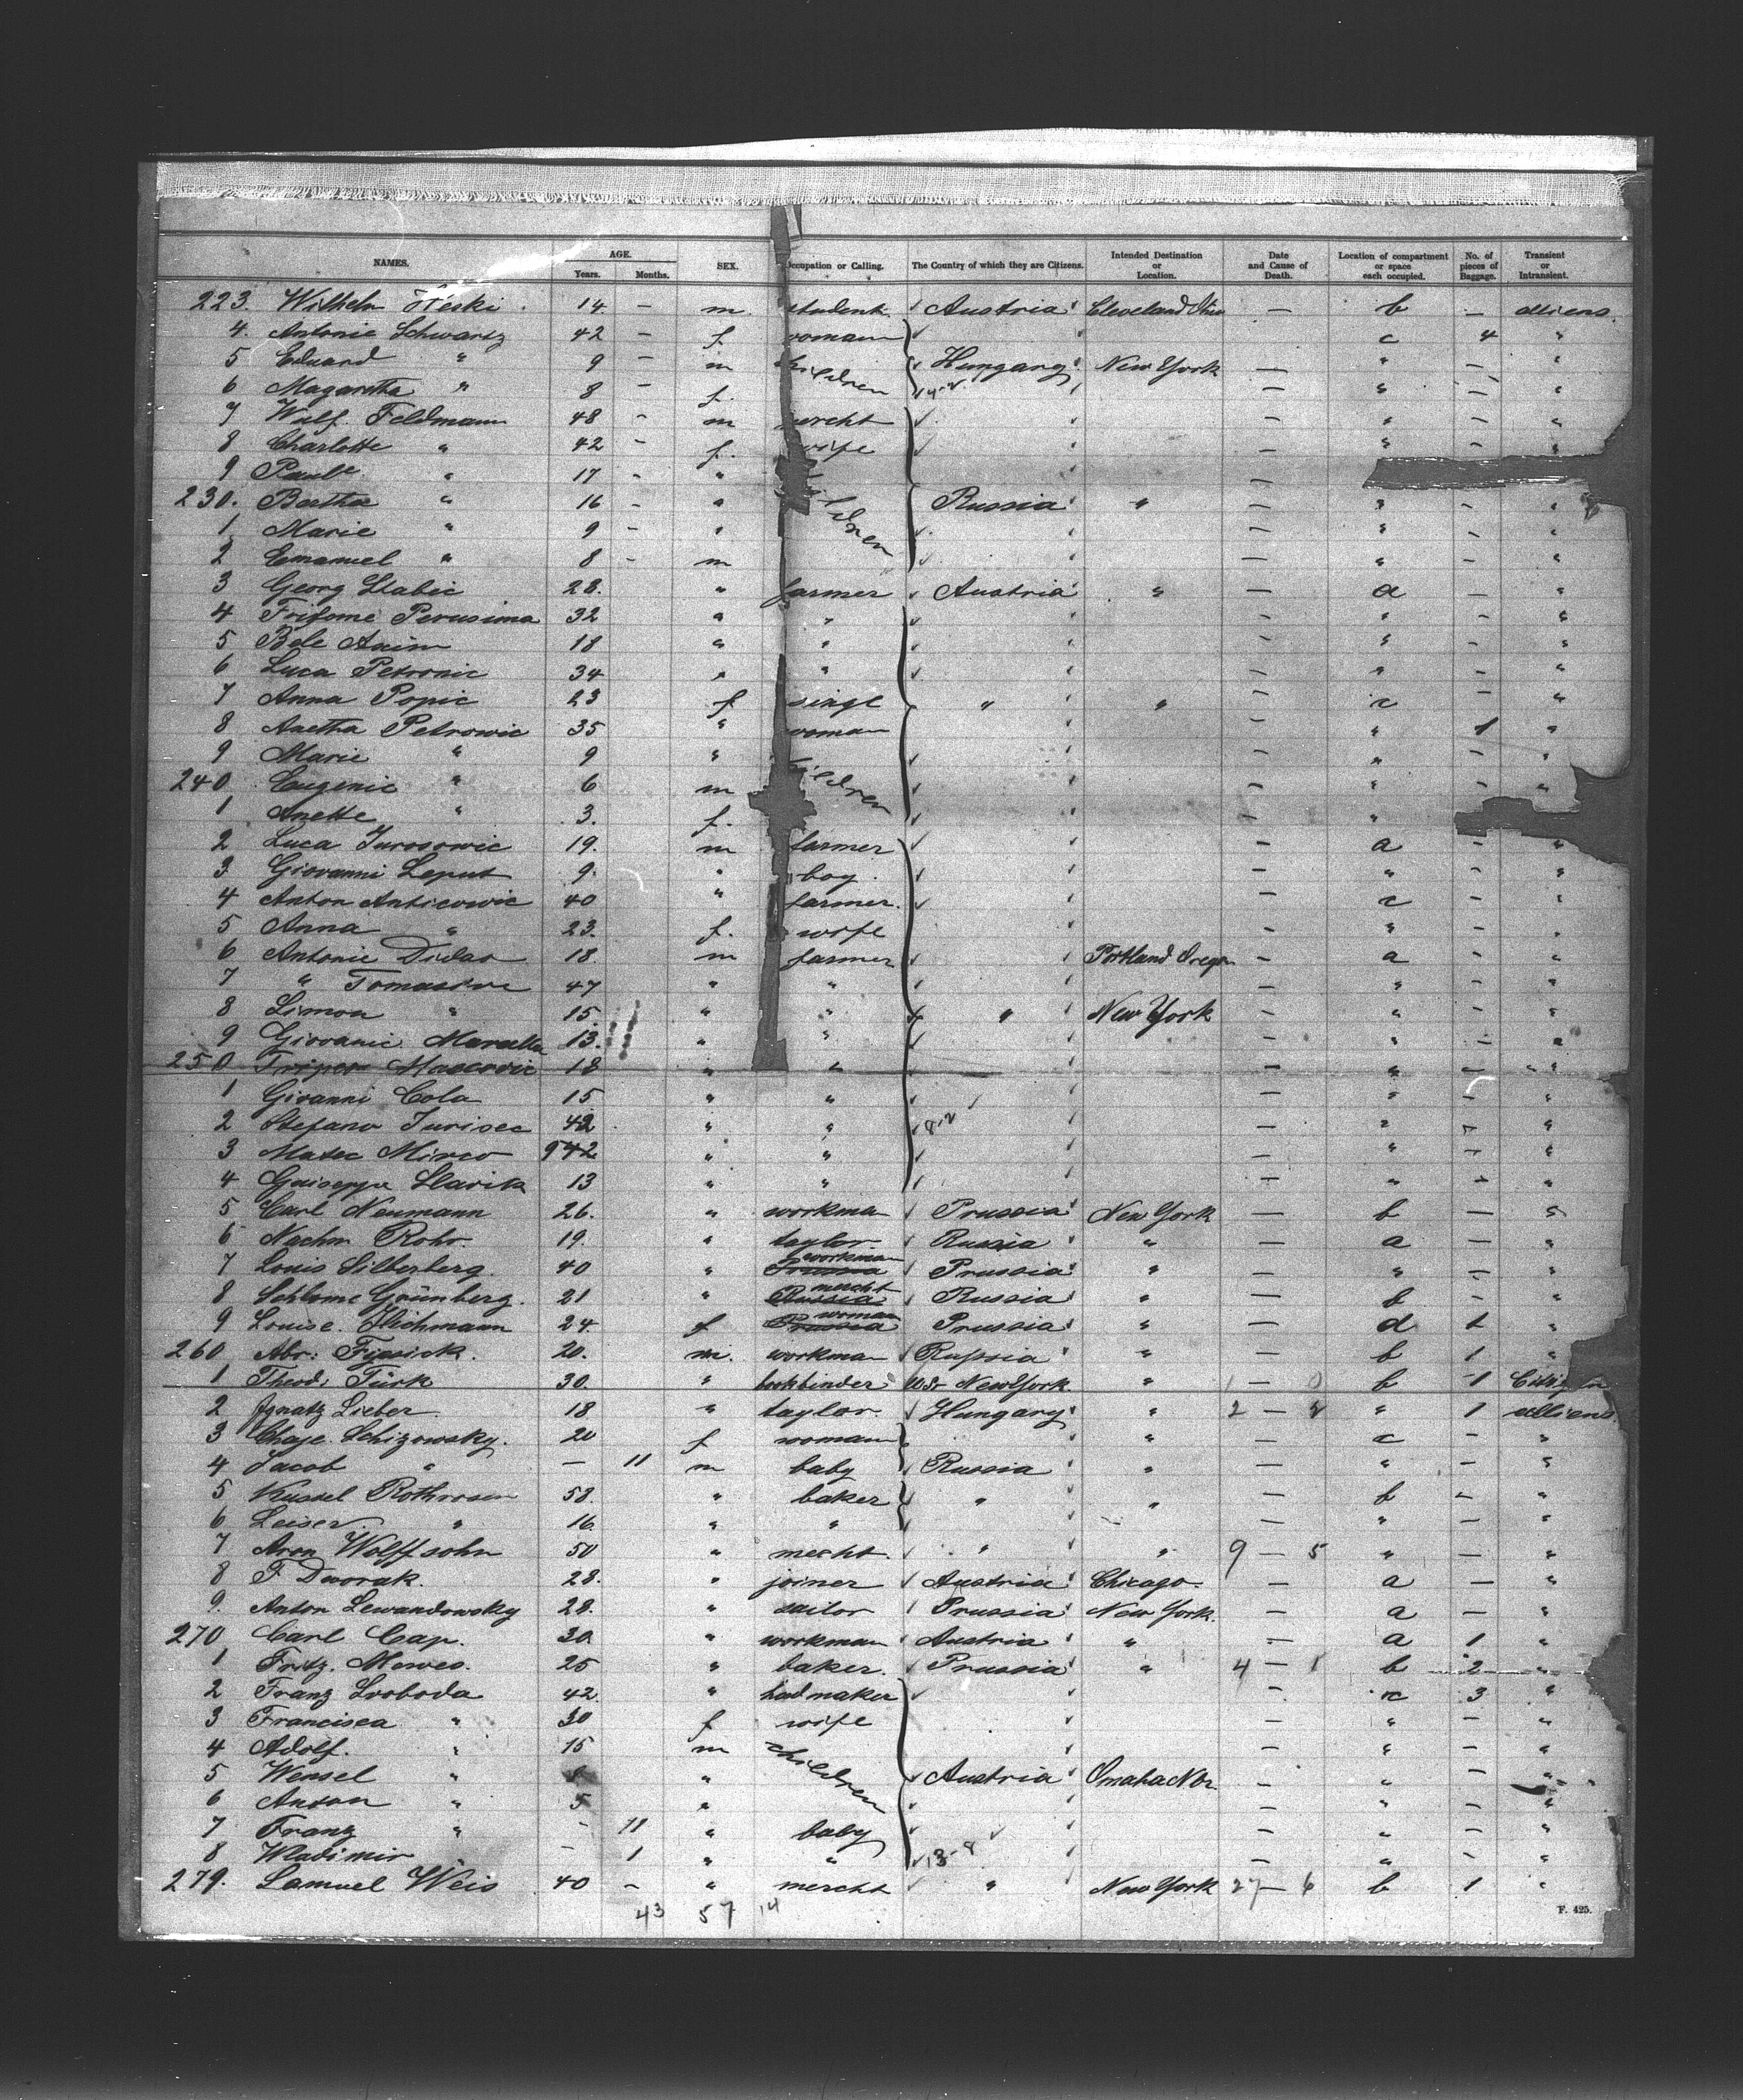 NAMES. AGE. Years. Months. SEX. Occupation or Calling. The Country of which they are Citizens. Intended Destination or Location. Date and Cause of Death. Location of compartment or space each occupied. No. of pieces of Baggage. Transient or Intransient.
223. Wilhelm 14 - m student Austria Cleveland Ohio - b - alliens
4 Antonie Schwartz 42 - f woman c 4 "
5 Eduard " 9 - m children Hungary New York - " - "
6 Magaretha " 8 - f. - " - "
7 Wulf. Feldmann 48 - m mercht - " - "
8 Charlotte " 42 - f. wife - " - "
9 Paul " 17 - " -
230. Bertha " 16 - " children Russia " - " - "
1 Marie " 9 - " - " - "
2 Emanuel " 8 - m - " - "
3 Georg Slabic 28. " farmer Austria " - a - "
4 Perusima 32 " " - " - "
5 Bele 18 " " - " - "
6 Luca Petronic 34 " " - " - "
7 Anna Popic 23 f singl " " - c - "
8 Anetha Petrowic 35 " woman - " 1 "
9 Marie " 9 " children - " - "
240 Eugenie " 6 m - " - "
1 Anette " 3. f. - "
2 Luca 19. m farmer - a - "
3 Giovanni Leput 9. " boy. - " - "
4 Anton Anticowic 40 " farmer. - c - "
5 Anna " 23. f. wife - " - "
6 Antonie Didas 18 m farmer Portland Oregon - a - "
7 " 47 " " - " - "
8 Simon " 15 " " " New York - " - "
9 Giovanic 13. " " - " - "
250 18 " " - " - "
1 Givanni Cola 15 " " - " - "
2 Stefano Jurisec 42 " " - " - "
3 Matec Mirco " " - " - "
4 Guiseppe Slarik 13 " " - " - "
5 Carl Neumann 26. " workman Prussia New York - b - "
6 Nachm Rohr. 19. " taylor Russia " - a - "
7 Louis Silberberg. 40 " workman Prussia " - " - "
8 Schlome Grünberg. 21 " mercht Russia " - b - "
9 Louise. 24. f woman Prussia " - d 1 "
260 Abr: 20. m. workman Russia " - b 1 "
1 Theod: Türk 30. " bookbinder New York. " - b 1 Citizen
2 Ignatz Lieber. 18 " taylor. Hungary " 2 - " 1 alliens
3 Chaje Schizowsky. 20 f woman " - c - "
4 Jacob " - 11 m baby Russia " - " - "
5 Kussel Rothrosen 58. " baker " " - b - "
6 Leiser " 16. " " - " - "
7 Aron Wolffsohn 50 " mercht. " " 9 - 5 " - "
8 F. Dworak. 28. " joiner Austria Chicago. - a - "
9. Anton Lewandowsky 28. " sailor Prussia New York. - a - "
270 Carl Cap. 30 " workman Austria " - a 1 "
1 Fritz. Mewes. 25 " baker. Prussia " 4 - 1 b 2 "
2 Franz Svoboda 42. " - c 3 "
3 Francisca " 30 f wife - " - "
4 Adolf. " 15 m children - " - "
5 Wensel " " Austria Omaha - " - "
6 Anton " 5 " - " - "
7 Franz " - 11 " baby - " - "
8 Wladimir " - 1 " " - " - "
279. Samuel Weis 40 - " mercht " New York 27 - 6 b 1 "
43 57 14
F. 425.